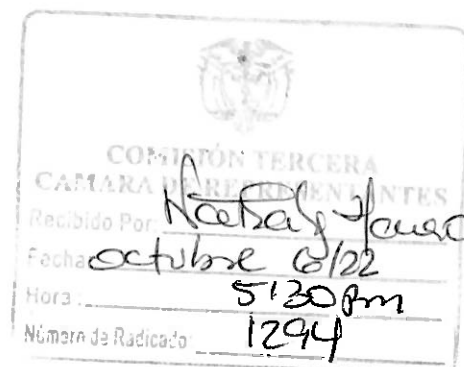 COMISIÓN TERCERA
CAMARA DE REPRESENTANTES
Recibido Por:
Fecha octubre 6/22
Hora: 5:30 pm
Número de Radicado: 1294